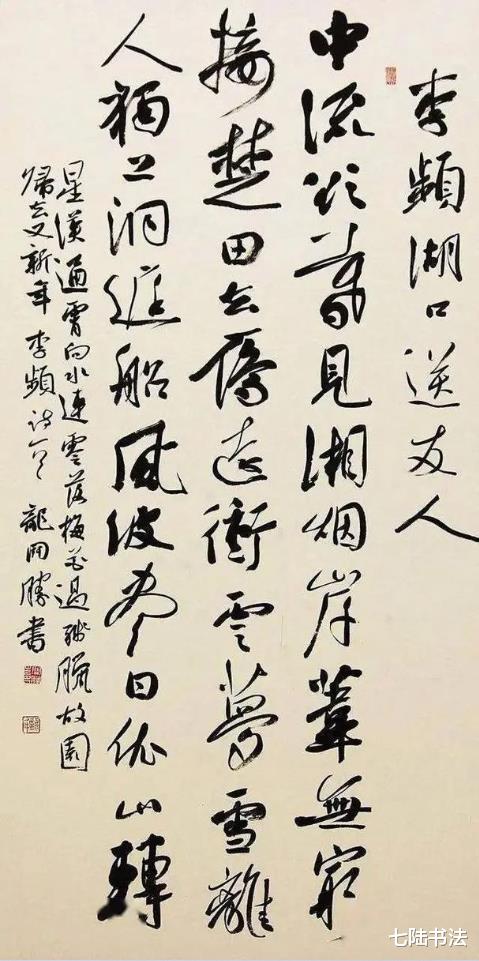 李頻湖口送友人
中流欲暮見湘烟岸葦無窮
接楚田去鴈遠衝雲夢雪離
人獨上洞庭船風波盡日依山轉
星漢通霄向水連零落梅花過殘臘故園
歸去又新年 李頻詩一首 龍開勝書
七陆书法